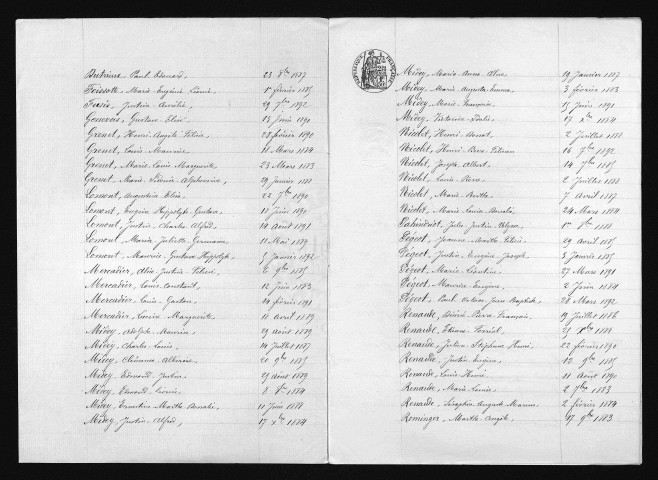 Paul Edouard, 23 8bre 1887
Poissott, Marie Eugénie Léonie, 1er février 1885
Justin Aurélie, 29 7bre 1892
Gustave Elie, 15 Juin 1890
Grenot, Henri Angèle, 28 février 1890
Grenot, Louis Maurice, 11 Mars 1884
Grenot, Marie Louise Marguerite, 23 Mars 1883
Grenot, Marie Alphonsine, 29 Janvier 1888
Lomont, Augustin Elie, 22 7bre 1890
Lomont, Eugène Hippolyte Gustave, 18 Juin 1890
Lomont, Justin Charles Alfred, 14 Août 1891
Lomont, Marie Juliette Germaine, 11 Mai 1889
Lomont, Maurice Gustave Hippolyte, 5 Janvier 1892
Mercadier, Alix Justin, 6 9bre 1885
Mercadier, Louis Constant, 12 Juin 1883
Mercadier, Louis Gaston, 24 février 1891
Mercadier, Louise Marguerite, 11 avril 1889
Midey, Adolphe Maurice, 29 août 1889
Midey, Charles Louis, 14 Juillet 1887
Midey, Clémence Albertine, 20 9bre 1885
Midey, Edmond Justin, 25 août 1889
Midey, Edmond, 8 8bre 1884
Midey, Ernestine Marthe Amélie, 11 Juin 1888
Midey, Justin Alfred, 17 Xbre 1884
RÉPUBLIQUE FRANÇAISE
Midey, Marie Anne Aline, 19 Janvier 1887
Midey, Marie Augusta Emma, 3 février 1883
Midey, Marie Françoise, 15 Juin 1891
Midey, Victorine, 17 Xbre 1884
Nicolet, Henri, 2 Juillet 1888
Nicolet, Henri, 16 7bre 1892
Nicolet, Joseph Albert, 14 7bre 1885
Nicolet, Louis, 2 Juillet 1888
Nicolet, Marie Berthe, 7 avril 1887
Nicolet, Marie Louise, 24 Mars 1884
Jules Justin, 1er 8bre 1888
Pégeot, Jeanne Marthe, 29 avril 1885
Pégeot, Justin Eugène Joseph, 3 Janvier 1885
Pégeot, Marie Léontine, 27 Mars 1891
Pégeot, Maurice Eugène, 2 Juin 1884
Pégeot, Paul Octave Jean Baptiste, 28 Mars 1892
Renaude, Pierre François, 19 Juillet 1886
Renaude, Etienne, 21 Xbre 1888
Renaude, Julien Stéphane Henri, 22 février 1890
Renaude, Justin Eugène, 12 9bre 1885
Renaude, Louis Henri, 11 Août 1890
Renaude, Marie Louise, 2 7bre 1883
Renaude, Séraphin Auguste, 2 février 1884
Rominger, Marthe Angèle, 17 9bre 1883